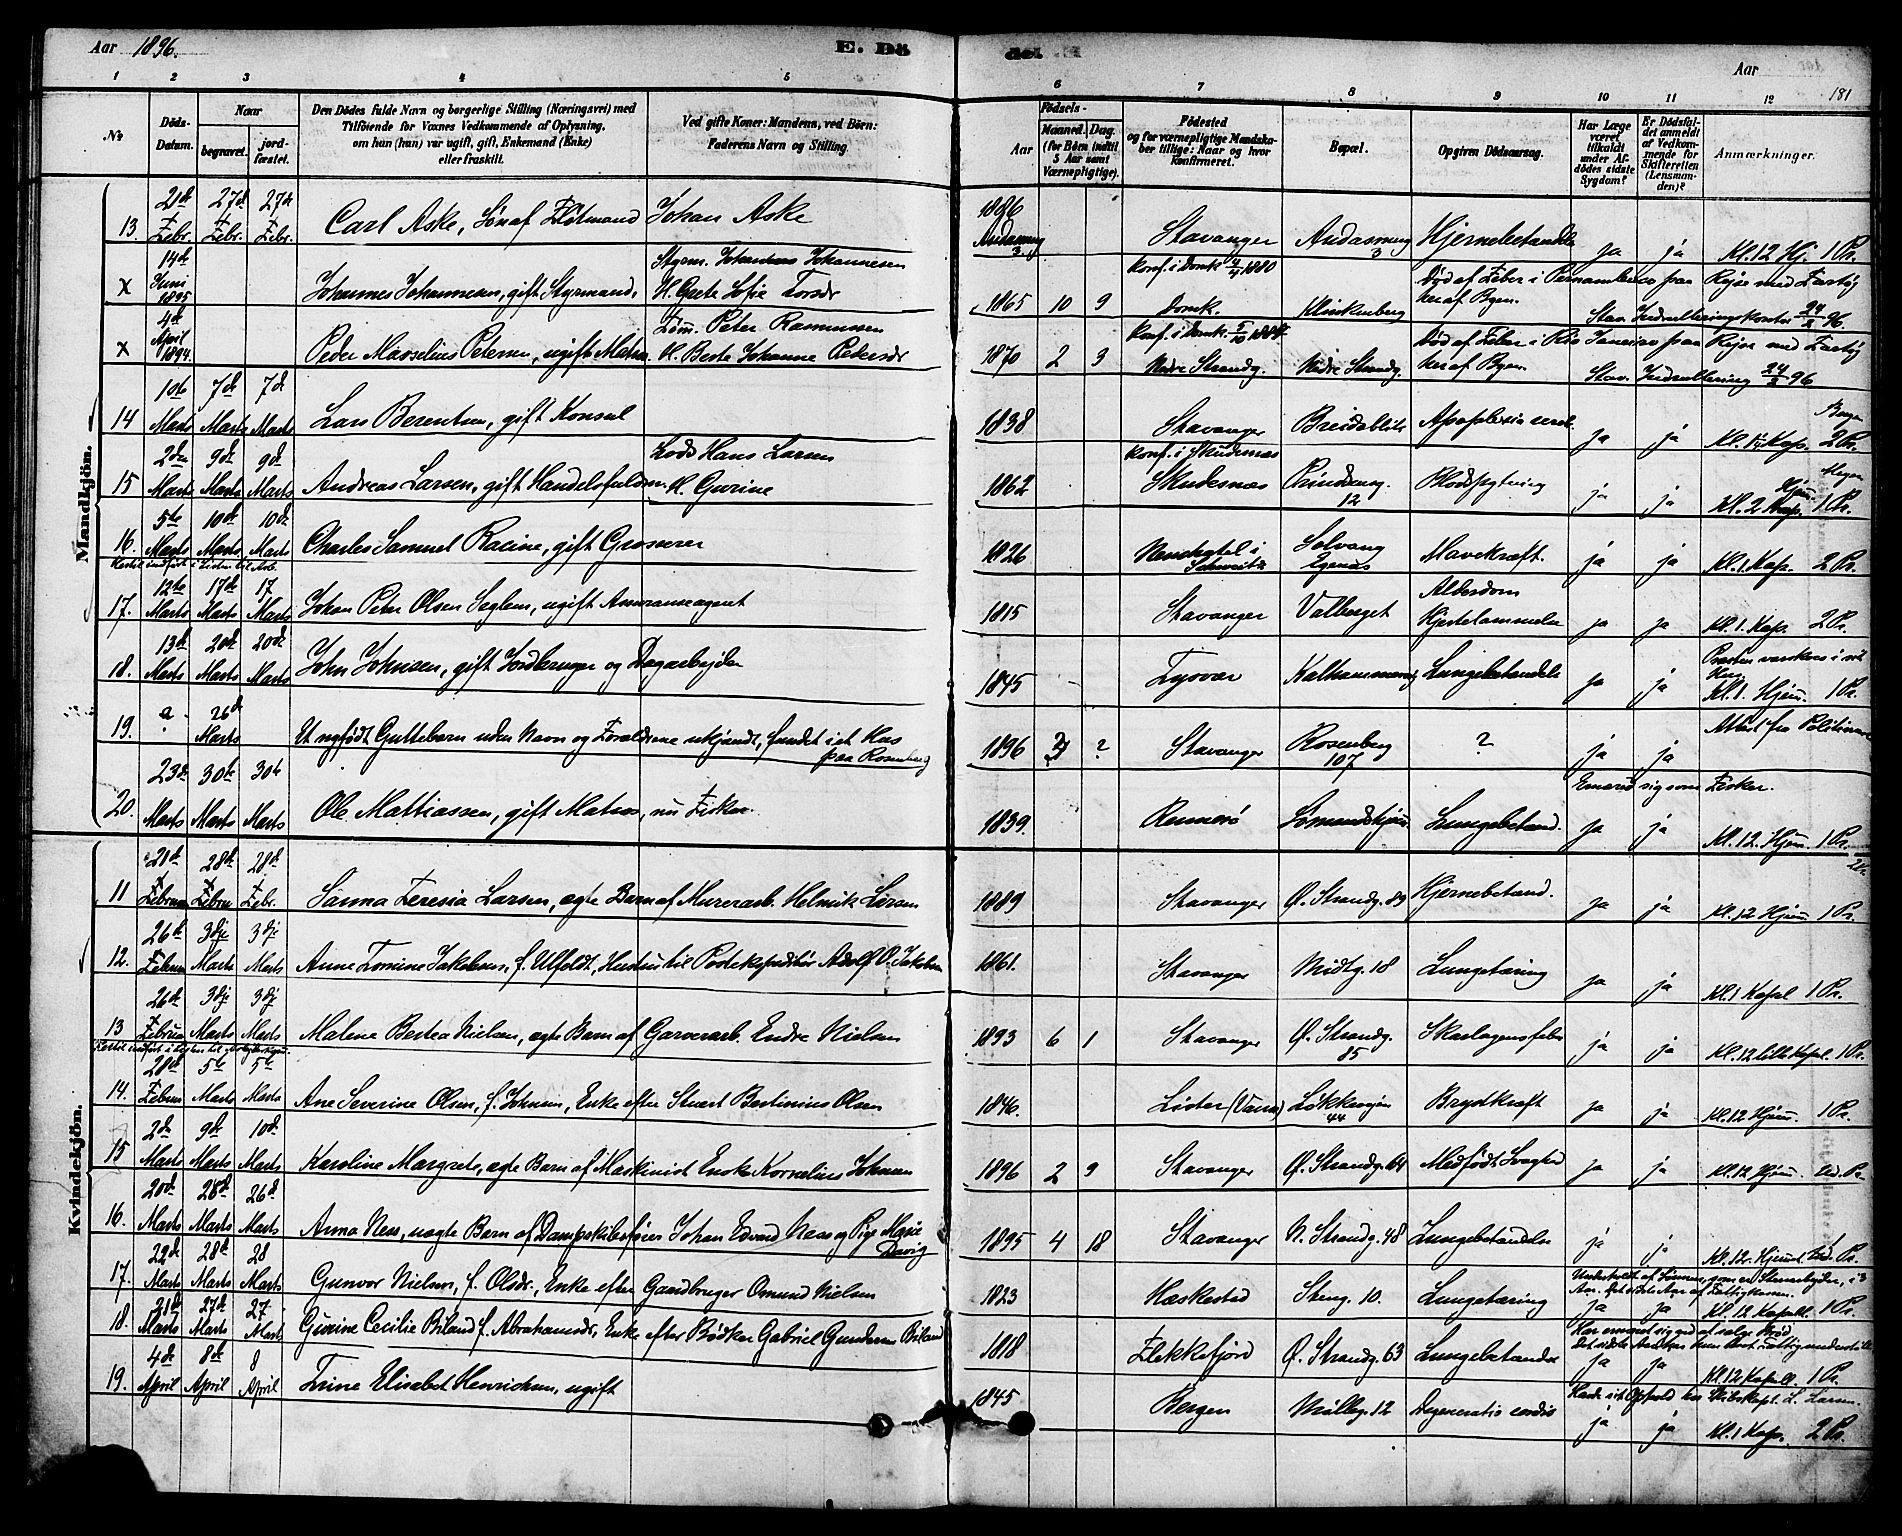 Aar 1896.
E. Dö
del. E
Aar
181
1 2 3 4 5 6 7 8 9 10 11 12
No
Döds-Datum.
Naar
begravet.
jordfæstet.
Den Dödes fulde Navn og borgerlige Stilling (Næringsvei) med Tilföiende for Voxnes Vedkommende af Oplysning, om hun (han) var ugift, gift, Enkemand (Enke) eller fraskilt.
Ved gifte Koner: Mandens, ved Börn: Faderens Navn og Stilling
Födsels-
Aar
Maaned. Dag.
(for Börn indtil 5 Aar samt Værnepligtige).
Födested og for værnepligtige Mandskaber tillige: Naar og hvor konfirmeret.
Bopæl.
Opgiven Dödsaarsag.
Har Læge været tilkaldt under Afdödes sidste Sygdom?
Er Dödsfaldet anmeldt af Vedkommende for Skifteretten (Lensmanden)?
Anmærkninger.
Mandkjön.
13. 21de Febr. 27de Febr. 27de Febr. Carl Aske, Søn af Fløtmand Johan Aske 1886 Stavanger Andasmug 3 Hjernebetændelse ja ja Kl. 12 Hj. 1 Pr.
x 14de Juni 1895 Johannes Johannesen, gift Styrmand, Styrm. Johannes Johannesen H. Grete Sofie Torsdr 1865 10 9 Konf. i Domk. 1880 Domk. Klinkenberg Død af Feber i Pernambuco paa Rejse med Fartøj her af Byen. Stav. Indrulleringskontor 24/2 96.
x 4de April 1894. Peder Masselius Petersen, ugift Matros Peter Rasmussen H. Berte Johanne Pedersdr 1870 2 3 Konf. i Domk. 5/10 Nedre Strandg. Nedre Strandg. Død af Feber i Rio Janeiro paa Rejse med Fartøj her af Byen. Stav. Indrullering 24/2 96
14 1ste Marts 7de Marts 7de Marts Lars Berentsen, gift Konsul 1838 Stavanger Breidablik Apoplexia cereb. ja ja Kap. 2 Pr.
15 2den Marts 9de Marts 9de Marts Andreas Larsen, gift Handelsfuldm. Lods Hans Larsen H. Gurine 1862 Konf. i Skudesnæs Skudesnæs Prindsensg. 12 Blodspytning ja ja Kl. 2 Kap. 1 Pr.
16. 5te Marts 10de Marts 10de Marts Charles Samuel Racine, gift Grosserer 1826 Neuchatel i Schweitz Solvang Egenæs Mavekræft. ja ja Kl. 1 Kap. 2 Pr.
17. 12te Marts 17de Marts 17 Marts Johan Peter Olsen Seglem, ugift Assuranceagent 1815 Stavanger Valberget Alderdom Hjertelammelse ja ja Kl. 1. Kap. 2 Pr.
18. 13de Marts 20de Marts 20de Marts John Johnsen, gift Jordbruger og Dagarbejder 1845 Tysvær Kalhammeren Lungebetændelse ja ja Kl. 1. Hjem. 1 Pr.
19. ? 26de Marts Et nyfødt Guttebarn uden Navn og Forældrene ukjendt, fundet i et Hus paa Rosenberg 1896 ? Stavanger Rosenberg 107 ? ja ja Attest fra Politimes.
20. 23de Marts 30te Marts 30te Marts Ole Mattiassen, gift Matros, nu Fisker. 1839. Rennesø Lungebetænd. Ernæret sig som Fisker. ja ja Kl. 12. Hjem. 1 Pr.
Kvindekjön.
11 21de Februar 28de Februar 28de Febr. Sanna Teresia Larsen, ægte Barn af Murerarb. Helmik Larsen 1889 Stavanger Ø. Strandg. 89 Hjernebetænd. ja ja Kl. 12 Hjem 1 Pr.
12. 26de Februar 3dje Marts 3dje Marts Anne Tomine Jakobsen, f. Ulfeldt, Hustru til Postekspeditør Adolf O. Jakobsen 1861. Stavanger Midtg. 18 Lungetæring ja ja Kl. 1 Kapel 1 Pr.
13 26de Februar 3dje Marts 3dj Marts Malene Bertea Nielsen, ægte Barn af Garverarb. Endre Nielsen 1893 6 1 Stavanger Ø. Strandg. 85 Skarlagensfeber ja ja Kl. 12 lille Kapel. 1 Pr.
14. 28de Februar 5te Marts 5te Marts Ane Severine Olsen, f. Johnsen, Enke efter Stuert Bertinius Olsen 1846. Lister (Vanse) Løkkeveien 44 Brystkræft ja ja Kl. 12 Hjem. 1 Pr.
15 2de Marts 9de Marts 10de Marts Karoline Margrete, ægte Barn af Maskinist Enok Kornelius Johnsen 1896 2 9 Stavanger Ø. Strandg. 64 Medfødt Svaghed ja ja Kl. 12 Hjem. ud. Pr.
16. 20de Marts 28de Marts 26de Marts Anna Næss, uægte Barn af Dampskibsfører Johan Edvard Næss og Pige Marie Davig 1895 4 18 Stavanger N. Strandg. 48 Lungebetændelse ja ja Kl. 12. Hjemmet ud. Pr.
17. 22de Marts 28de Marts 28 Marts Gunvor Nielsen, f. Olsdr., Enke efter Gaardbruger Omund Nielsen 1823 Hæskestad Steng. 10. Lungetæring Underholdt af Sønnen, som er Stenarbejder, i 3 Aar. Det sidste Aar af Fattigkassen. ja ja Kl. 12 Kapell. 1 Pr.
18. 21de Marts 27de Marts 27 Marts Gurine Cecilie Biland f. Abrahamsdr., Enke efter Bødker Gabriel Gundersen Biland 1818 Flekkefjord Ø. Strandg. 63 Lungebetændelse Har ernæret sig ved at sælge Brød. ja ja Kl. 12 Kapell. 1 Pr.
19. 4de April 8de April 8 April Trine Elisabet Henrichsen, ugift 1845 Bergen Mølleg. 12 Degeneratio cordis Havde sit Ophold hos Skibskapt. L. Larsen. ja ja Kl. 1 Kap. 2 Pr.